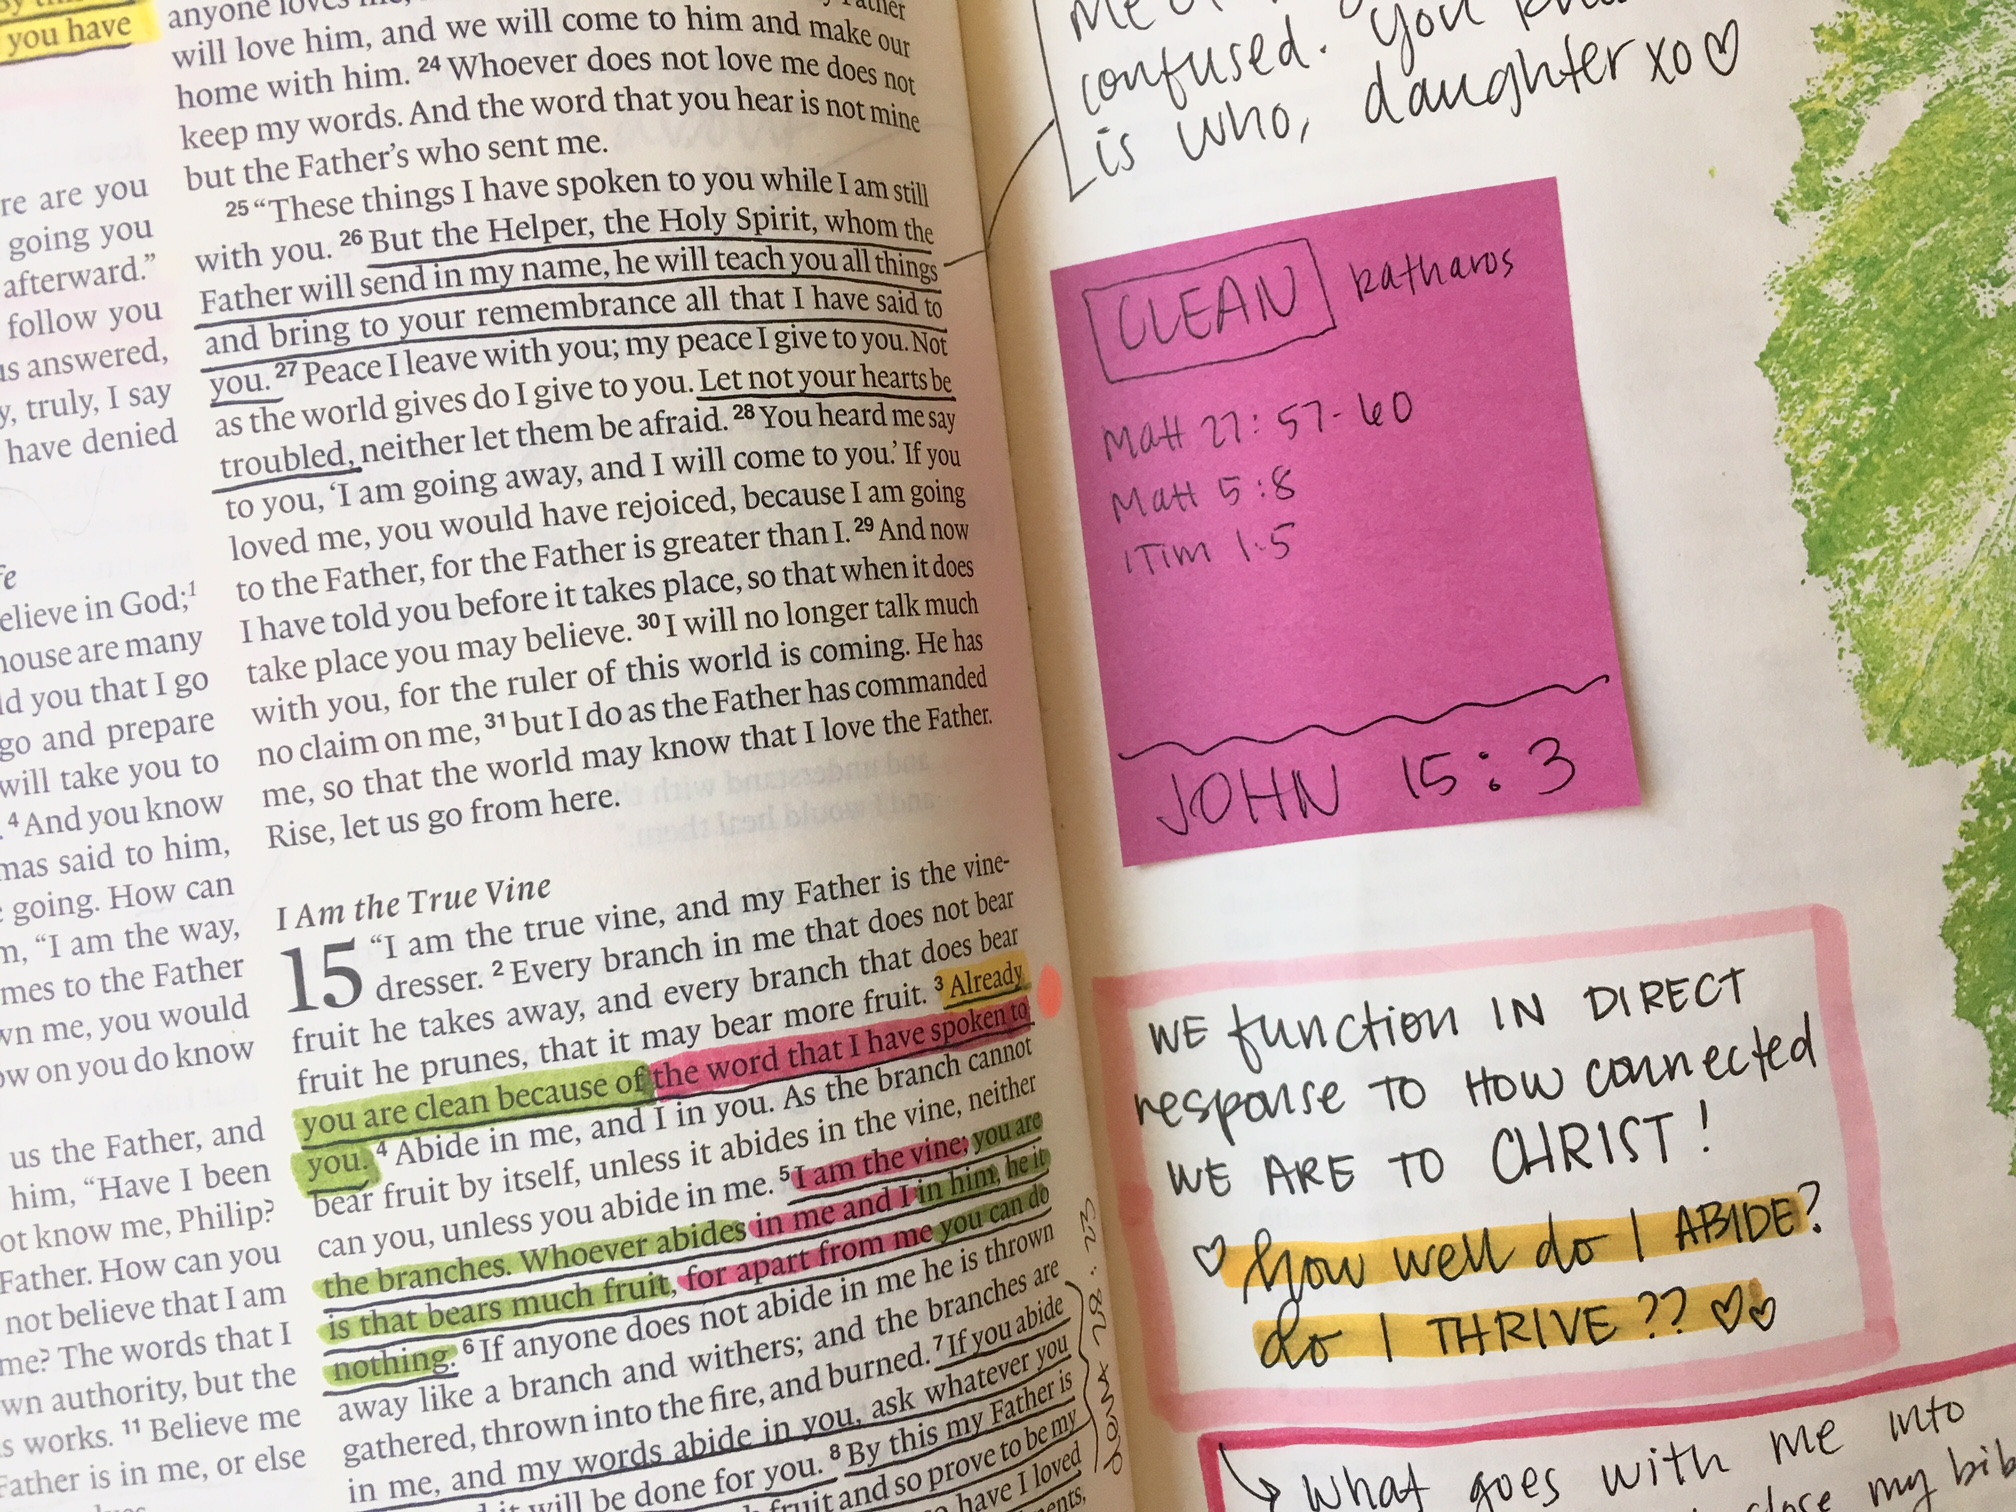 you have
re are you
going you
afterward.”
follow you
us answered,
y, truly, I say
have denied
elieve in God;1
house are many
ld you that I go
go and prepare
will take you to
4 And you know
mas said to him,
going. How can
m, “I am the way,
mes to the Father
wn me, you would
ow on you do know
us the Father, and
him, “Have I been
ot know me, Philip?
Father. How can you
not believe that I am
me? The words that I
wn authority, but the
s works. 11 Believe me
Father is in me, or else
will love him, and we will come to him and make our
home with him. 24 Whoever does not love me does not
keep my words. And the word that you hear is not mine
but the Father’s who sent me.
25 “These things I have spoken to you while I am still
with you. 26 But the Helper, the Holy Spirit, whom the
Father will send in my name, he will teach you all things
and bring to your remembrance all that I have said to
you. 27 Peace I leave with you; my peace I give to you. Not
as the world gives do I give to you. Let not your hearts be
troubled, neither let them be afraid. 28 You heard me say
to you, ‘I am going away, and I will come to you.’ If you
loved me, you would have rejoiced, because I am going
to the Father, for the Father is greater than I. 29 And now
I have told you before it takes place, so that when it does
take place you may believe. 30 I will no longer talk much
with you, for the ruler of this world is coming. He has
no claim on me, 31 but I do as the Father has commanded
me, so that the world may know that I love the Father.
Rise, let us go from here.
I Am the True Vine
15 “I am the true vine, and my Father is the vine-
dresser. 2 Every branch in me that does not bear
fruit he takes away, and every branch that does bear
fruit he prunes, that it may bear more fruit. 3 Already
you are clean because of the word that I have spoken to
you. 4 Abide in me, and I in you. As the branch cannot
bear fruit by itself, unless it abides in the vine, neither
can you, unless you abide in me. 5 I am the vine; you are
the branches. Whoever abides in me and I in him, he it
is that bears much fruit, for apart from me you can do
nothing. 6 If anyone does not abide in me he is thrown
away like a branch and withers; and the branches are
gathered, thrown into the fire, and burned. 7 If you abide
in me, and my words abide in you, ask whatever you
it will be done for you. 8 By this my Father is
fruit and so prove to be my
have I loved
confused. you
is who, daughter xo♡
CLEAN katharos
Matt 27:57-60
Matt 5:8
1 Tim 1:5
JOHN 15:3
WE function IN DIRECT
response TO HOW connected
WE ARE TO CHRIST!
♡ how well do I ABIDE?
do I THRIVE?? ♡♡
→ What goes with me into
close my bib